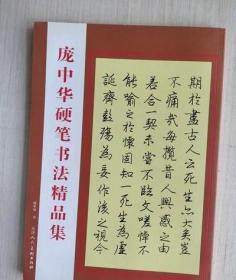 庞中华硬笔书法精品集
期於盡古人云死生亦大矣豈
不痛哉每攬昔人興感之由
若合一契未嘗不臨文嗟悼不
能喻之於懷固知一死生為虛
誕齊彭殤為妄作後之視今
天津人民美术出版社